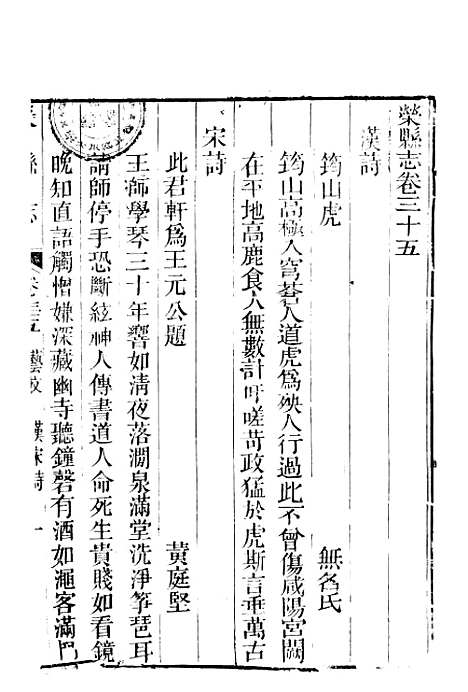 榮縣志卷三十五
漢詩
筠山虎 無名氏
筠山高極人窮苍人道虎為殃人行過此不曾傷咸陽宮闕
在平地高鹿食人無數計吁嗟苛政猛於虎斯言垂萬古
宋詩
此君軒為王元公題 黃庭堅
王師學琴三十年響如清夜落澗泉滿堂洗淨箏琶耳
請師停手恐斷絃神人傳書道人命死生貴賤如看鏡
晚知直語觸憎嫌深藏幽寺聽鐘磬有酒如澠客滿門
榮縣志 卷三十五 藝文 漢宋詩 一